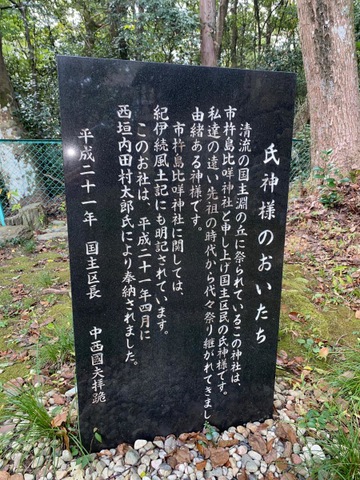 氏神様のおいたち
清流の国主淵の丘に祭られているこの神社は、
市杵島比咩神社と申し上げ国主区民の氏神様です。
私達の遠い先祖の時代から代々祭り継がれてきまし
由緒ある神様です。
市杵島比咩神社に関しては、
紀伊続風土記にも明記されています。
このお社は、平成二十一年四月に
西垣内田村太郎氏により奉納されました。
平成二十一年　国主区長　中西國夫拝跪